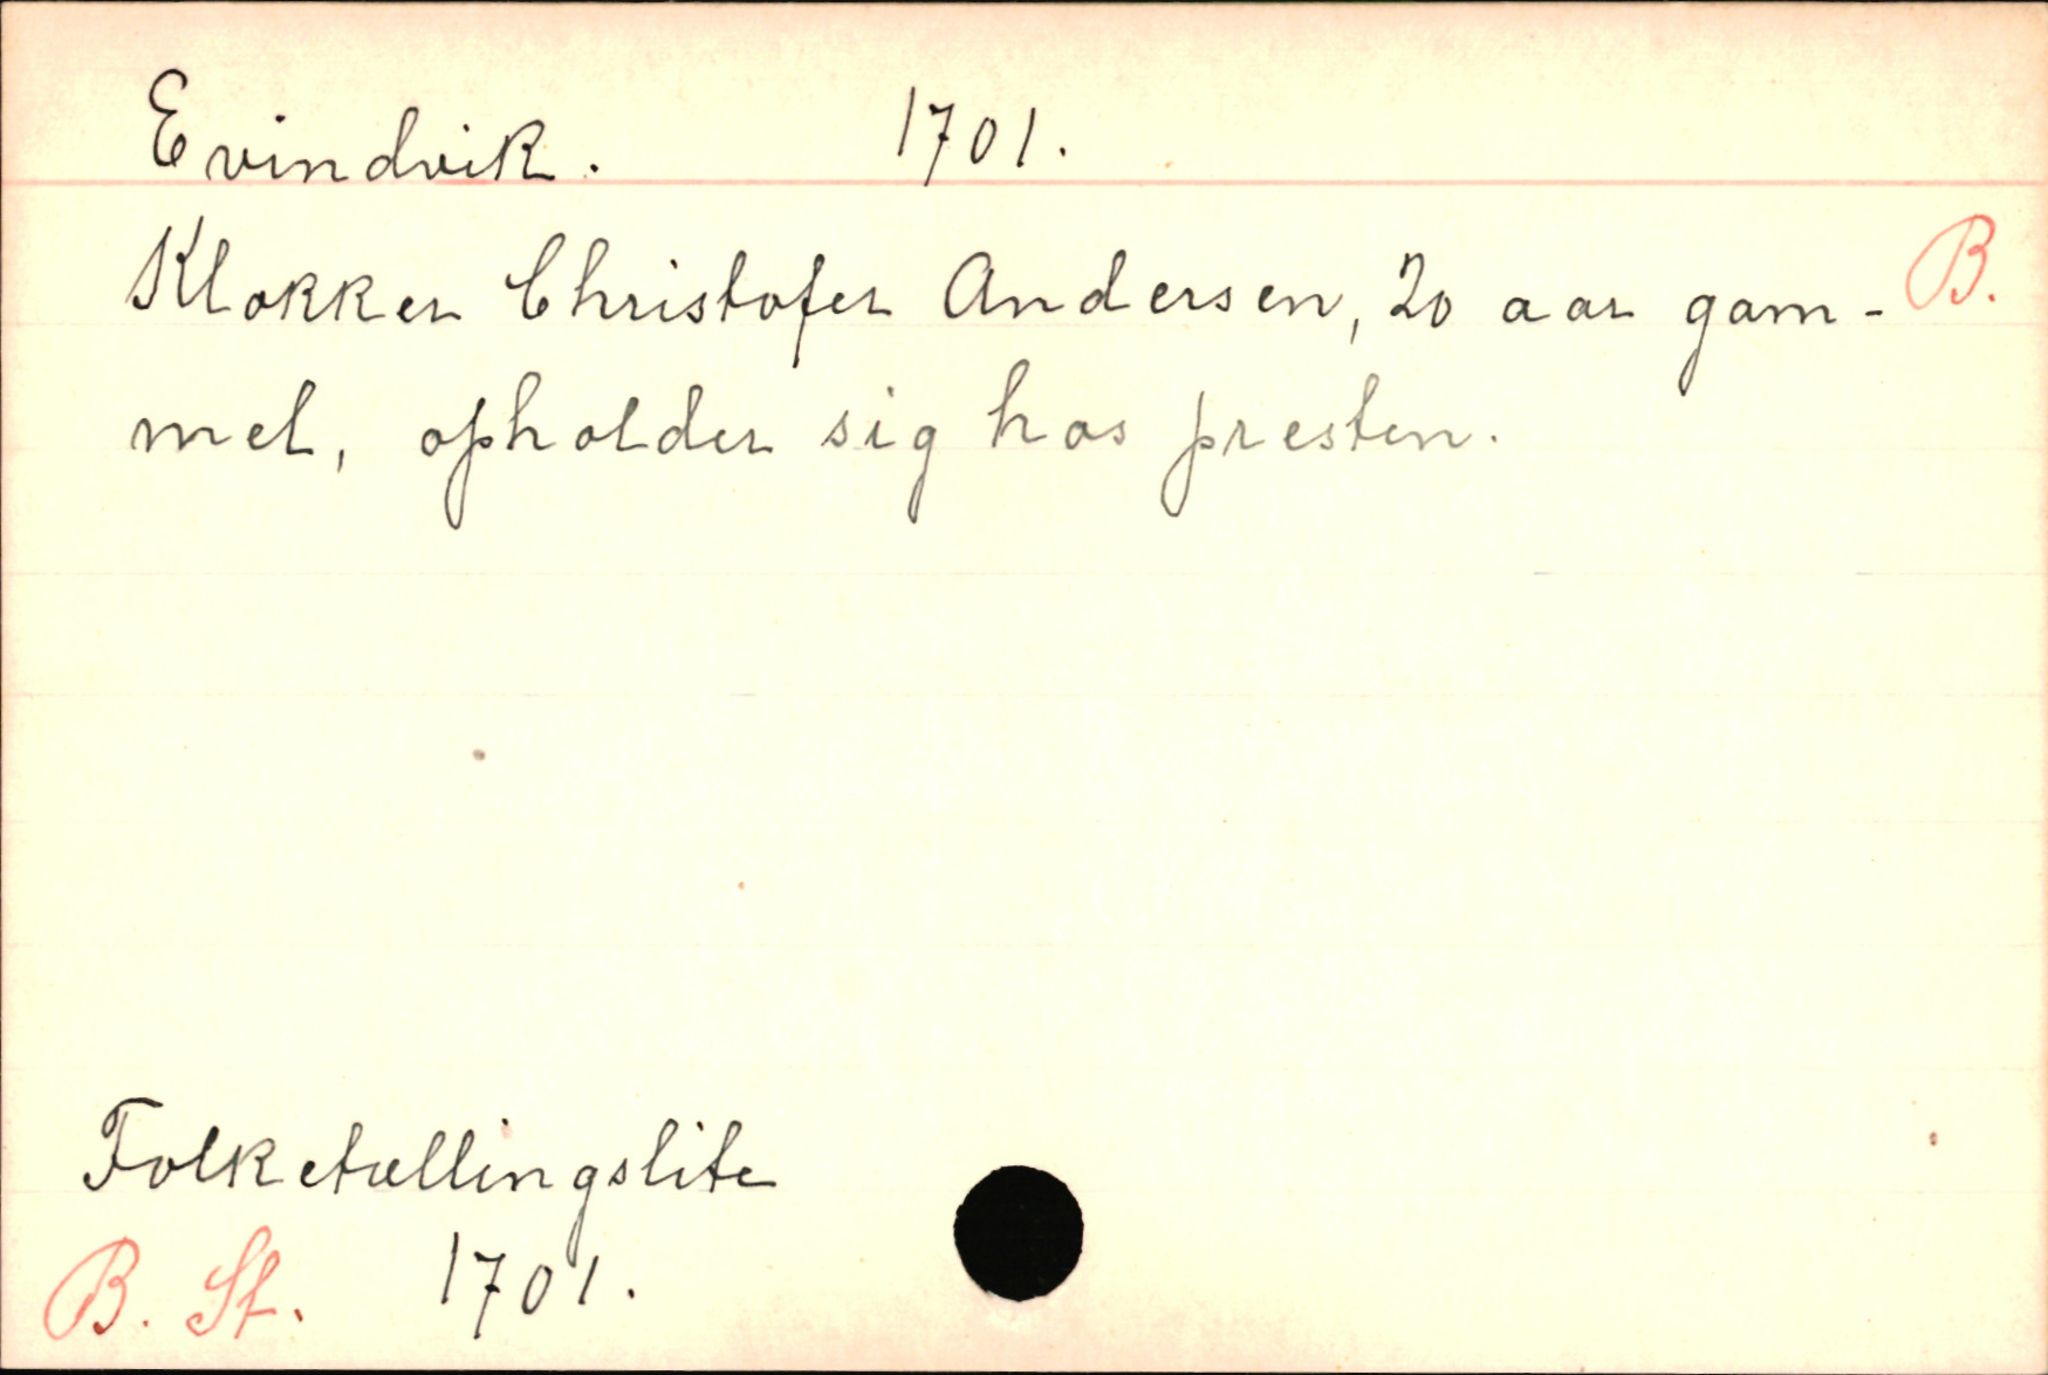 Evindvik. 1701.
Klokker Christofer Andersen, 20 aar gam- B.
mel, opholder sig hos presten.
Folketællingslite
B. St. 1701.